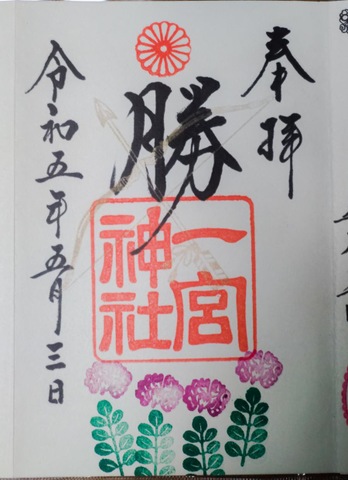 奉拝
勝
一宮
神社
令和五年五月三日